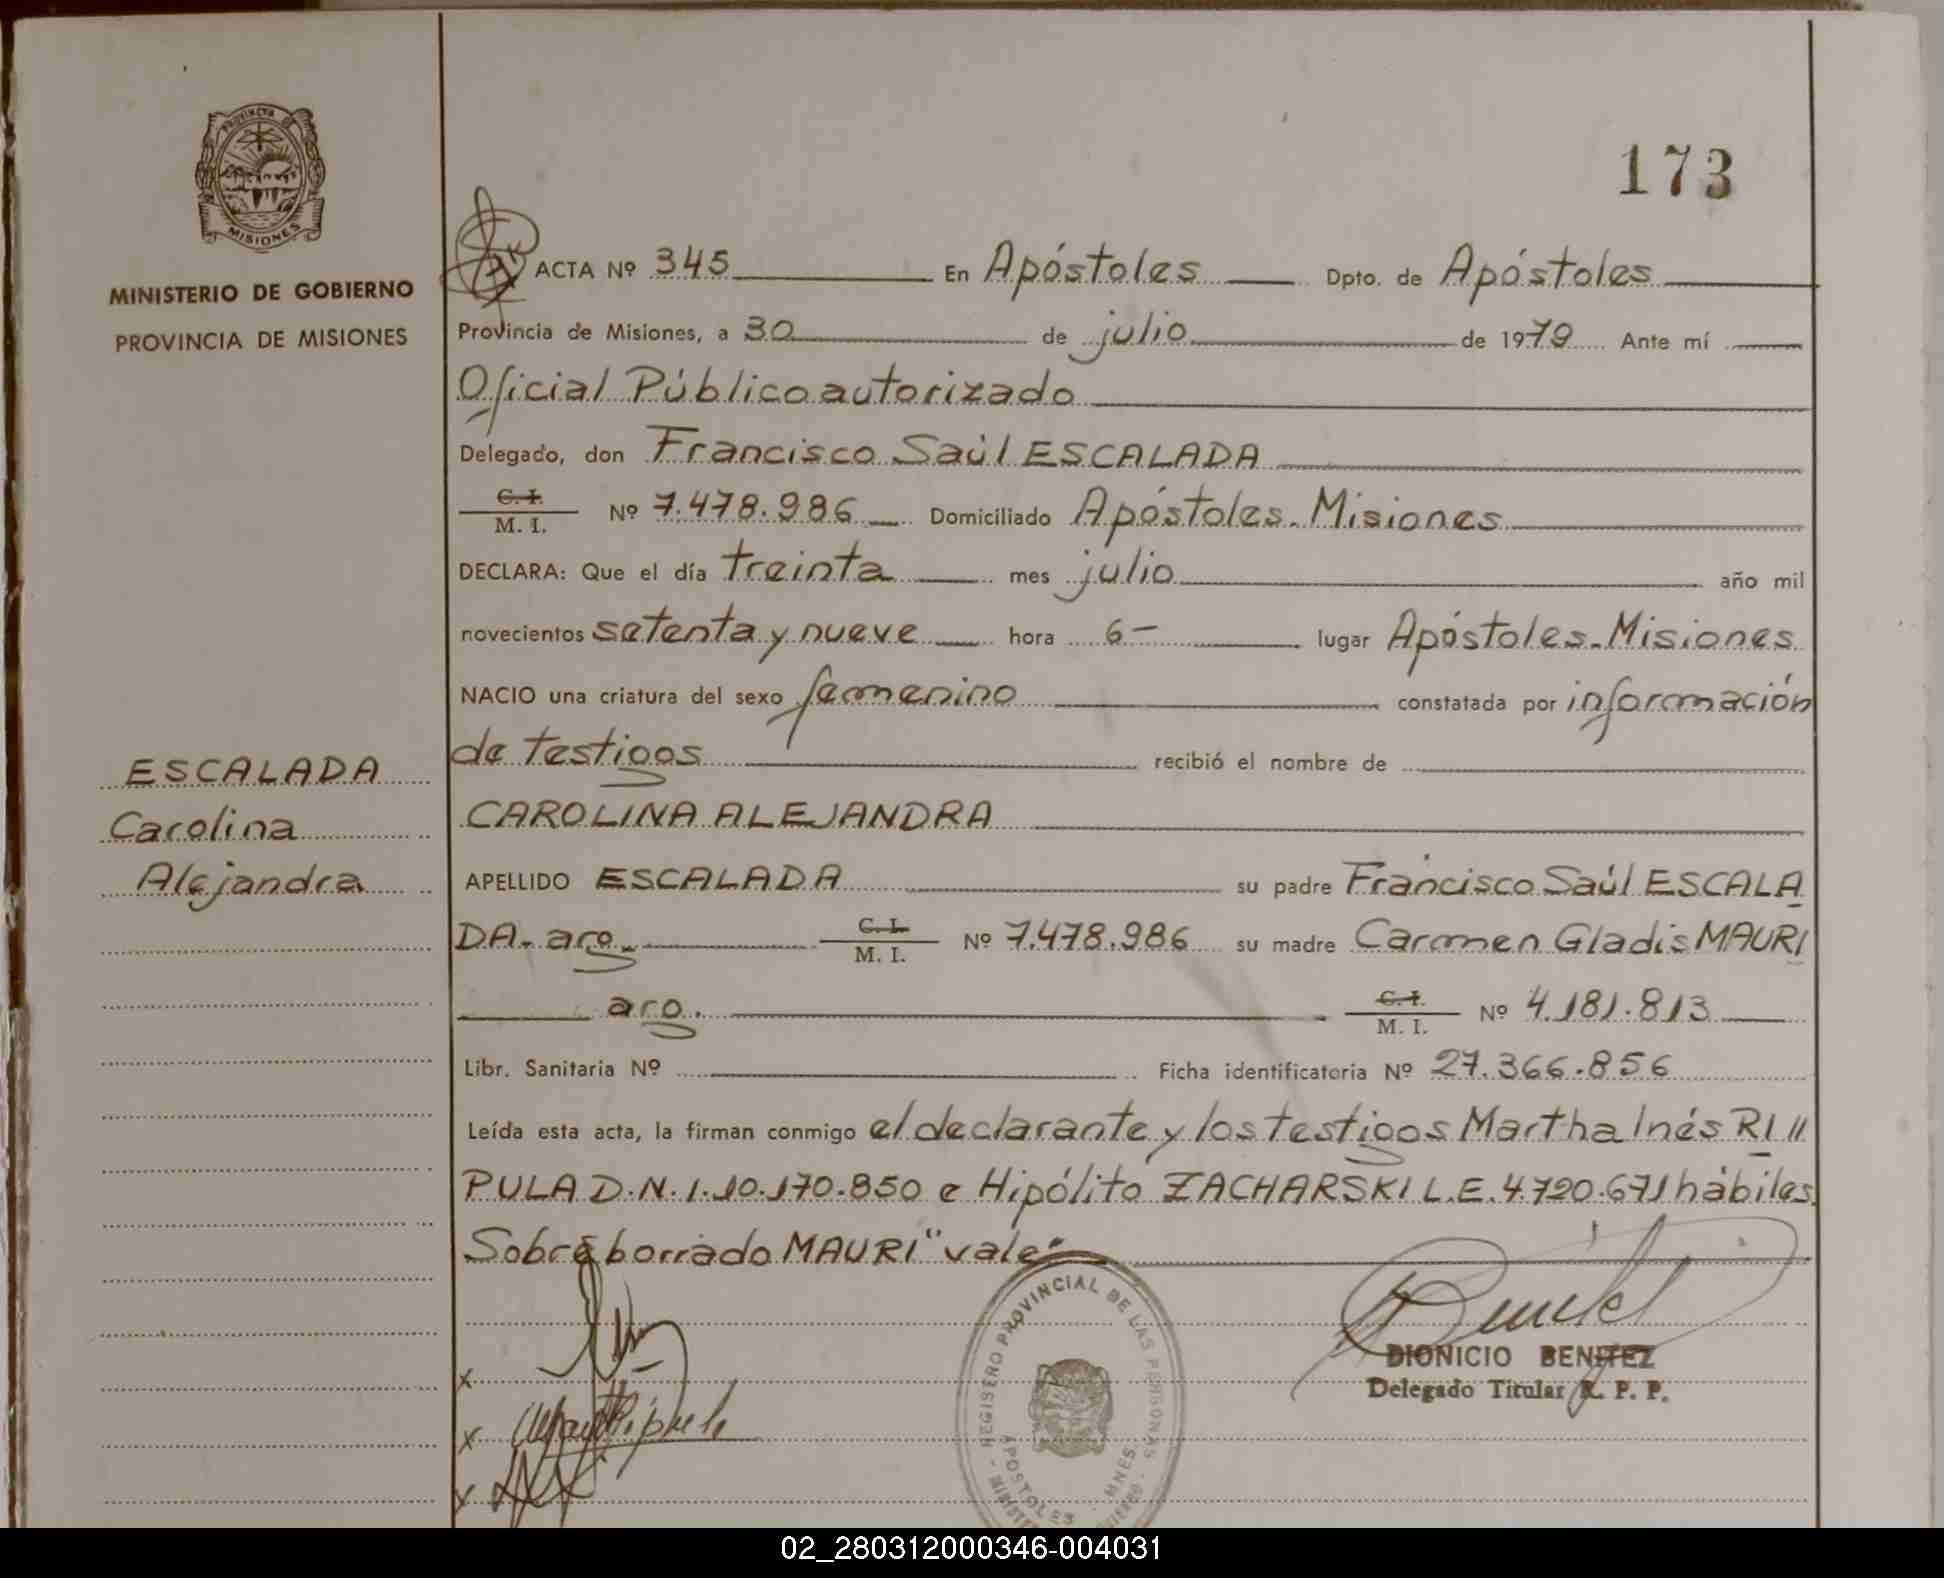 PROVINCIA DE
MISIONES
MINISTERIO DE GOBIERNO
PROVINCIA DE MISIONES
173
ACTA Nº 345 En Apóstoles Dpto. de Apóstoles
Provincia de Misiones, a 30 de julio de 1979 Ante mí
Oficial Público autorizado
Delegado, don Francisco Saúl ESCALADA
C. I.
M. I. Nº 7.478.986 Domiciliado Apóstoles. Misiones
DECLARA: Que el día treinta mes julio año mil
novecientos setenta y nueve hora 6- lugar Apóstoles. Misiones
NACIO una criatura del sexo femenino constatada por información
de testigos recibió el nombre de
ESCALADA
Carolina
Alejandra
CAROLINA ALEJANDRA
APELLIDO ESCALADA su padre Francisco Saúl ESCALA
DA. arg. C. I.
M. I. Nº 7.478.986 su madre Carmen Gladis MAURI
arg. C. I.
M. I. Nº 4.181.813
Libr. Sanitaria Nº Ficha identificatoria Nº 27.366.856
Leída esta acta, la firman conmigo el declarante y los testigos Martha Inés RI //
PULA D.N.I. 10.170.850 e Hipólito ZACHARSKI L.E. 4.720.671 hábiles.
Sobre borrado MAURI "vale"
REGISTRO PROVINCIAL DE LAS PERSONAS
APOSTOLES MNES.
DIONICIO BENITEZ
Delegado Titular R. P. P.
x
x
x
02_280312000346-004031